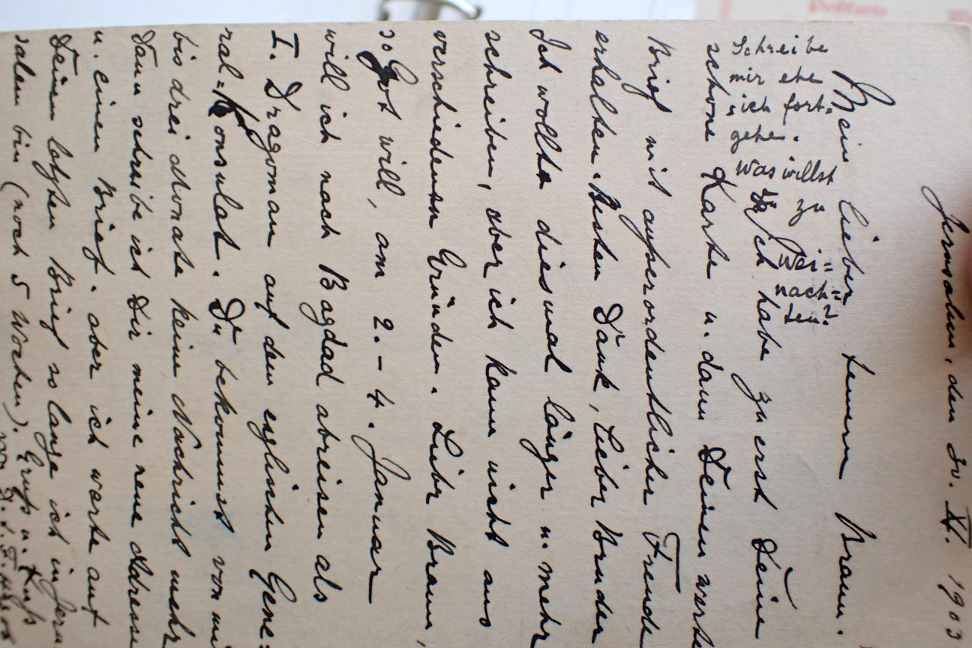 Jerusalem, den XI. 1903
Mein lieber teurer Braun.
Schreibe
mir ehe
sich fort=
gehen.
Was willst
Du zu
Wei=
nach=
ten?
Ich habe zuerst Deine
schöne Karte u. dann Deinen werten
Brief mit außerordentlicher Freude
erhalten. Besten Dank, lieber Bruder
Ich wollte diesmal länger u. mehr
schreiben, aber ich kann nicht aus
verschiedenen Gründen. Lieber Braun,
so Gott will, am 2.-4. Januar
will ich nach Bagdad abreisen als
I. Dragoman auf dem englischen Gene=
ral=Konsulat. Du bekommst von mir
bis drei Monate keine Nachricht mehr
Dan schreibe ich Dir meine neue Adresse
u. einen Brief. aber ich warte auf
Deinen letzten Brief so lange ich in Jeru
salem bin (noch 5 Wochen). Gruß u. Kuß